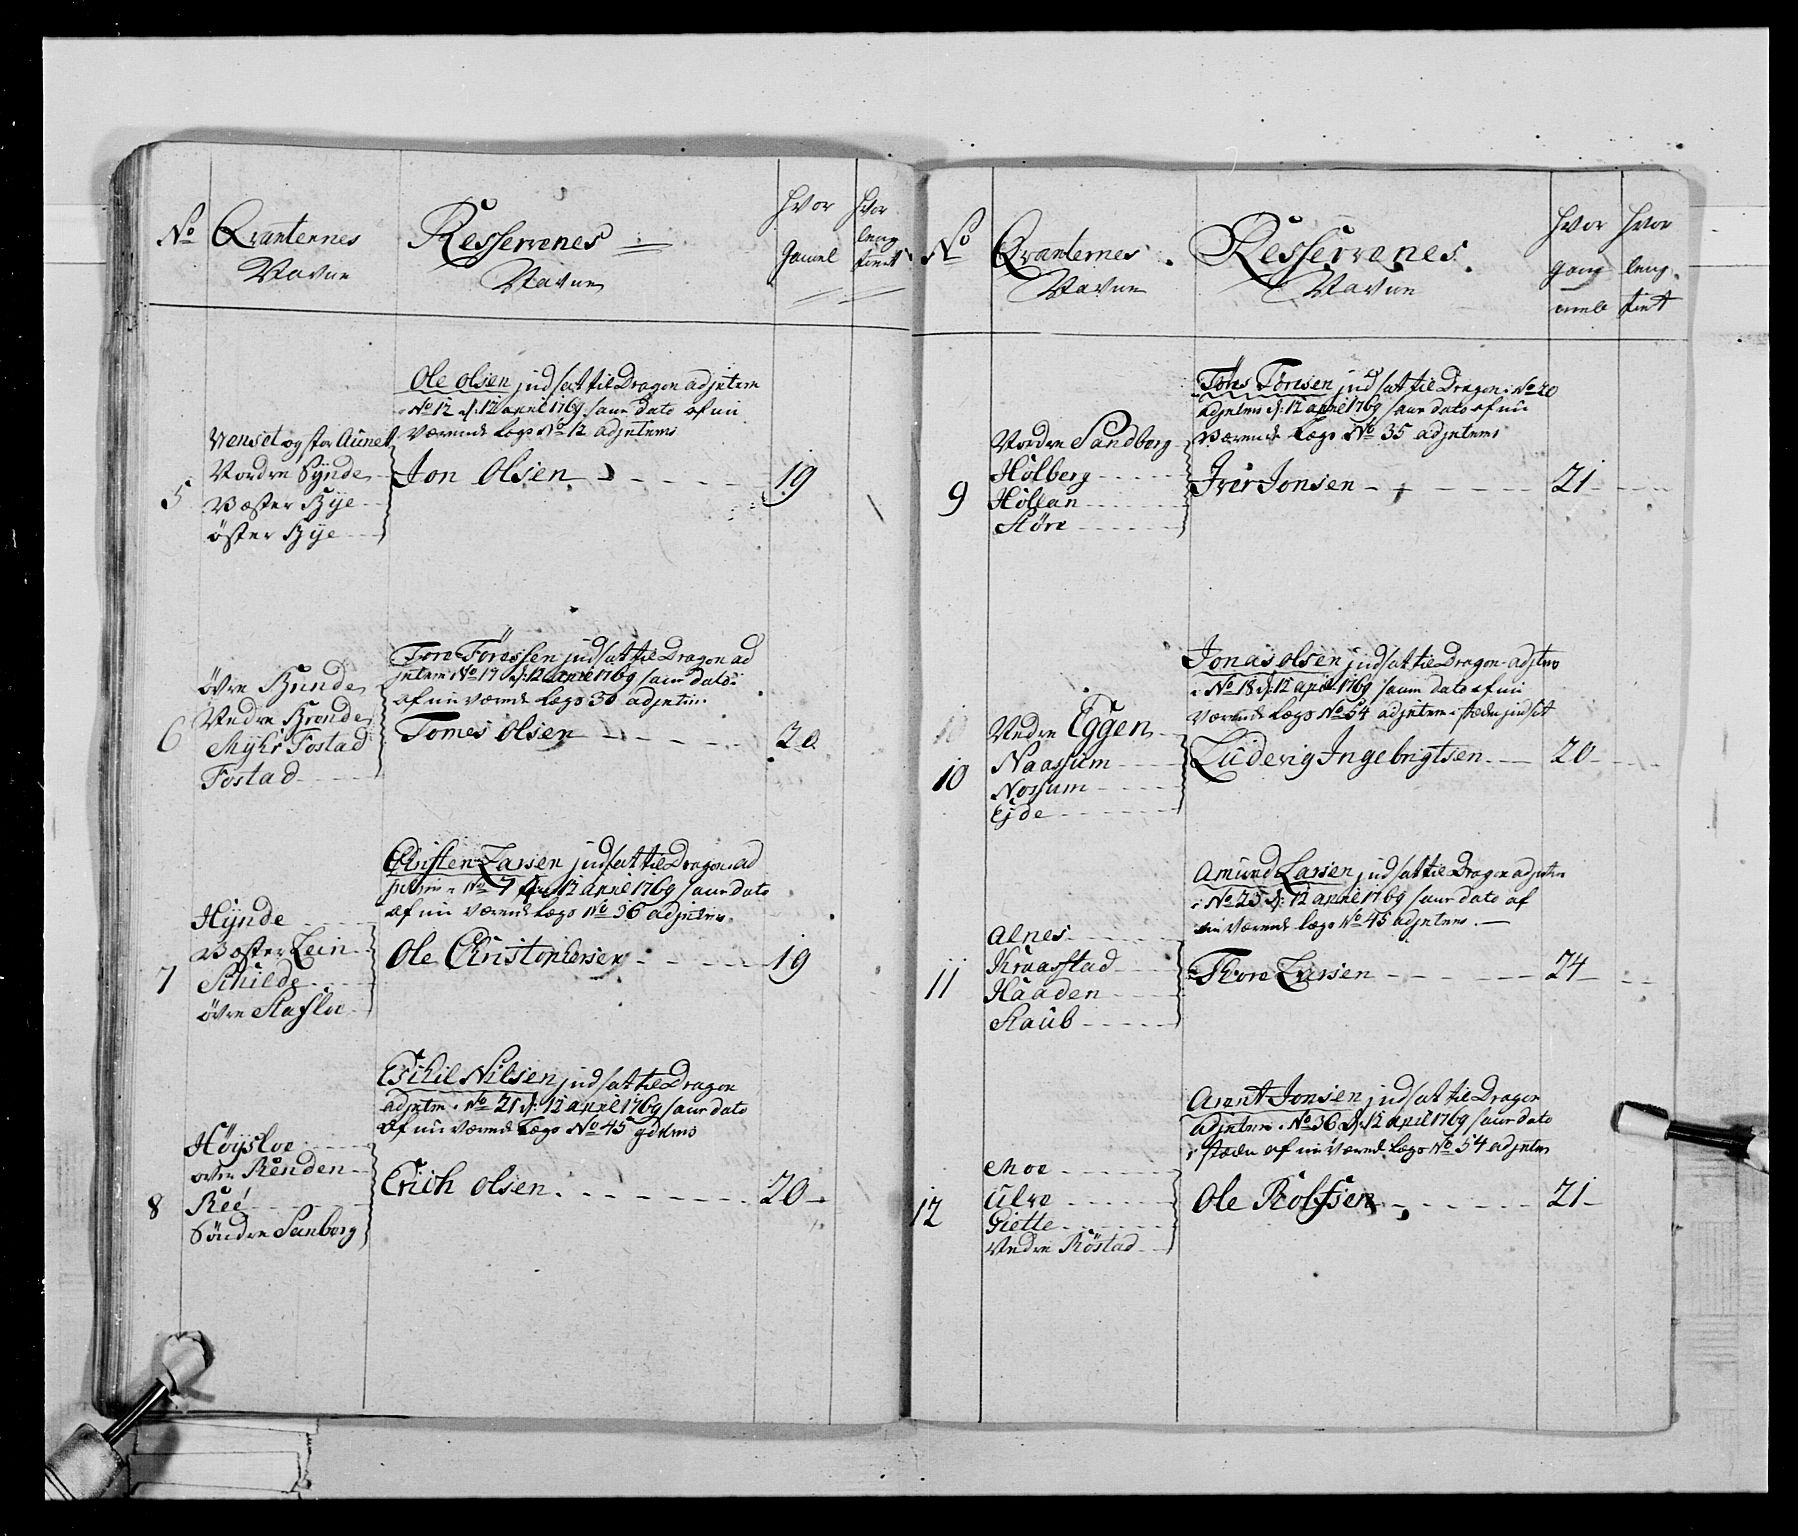 No Qvarternes Navne
Resservenes Navne
Hvor Gamel
Hvor leng tient
Venset og stor Aunet
Nordre Synde
Væster Bye
öster Bye
5
Ole Olsen indsat til Dragon adjntem
No 12 d: 12 april 1769 saur dato af nu
værende Lægs No 12 adjntems
Jon Olsen
19
övre Hunde
Nedre Hronde
Myhr Fostad
Fostad
6
Tore Töressen indsat til Dragon ad
jntem No 19 d: 12 april 1769 saur dato
af nu værende Lægs 30 adjntem
Tomes Olsen
20
Hynde
Væster Lein
Schilde
övre Stafloe
7
Christen Larsen indsat til Dragon ad
No 7 den 12 april 1769 saur dato
af nu værende Lægs No 36 adjntem
Ole Christophersen
19
Höysloe
över Renden
Reé
Söndre Sanborg
8
Eschil Nilsen indsat til Dragon
adjntem No 21 d: 12 april 1769 saur dato
af nu værende Lægs No 45
Erich Olsen
20
No Qvarternes Navne
Resservenes Navne
Hvor gang amel
Hvor leng tient
Nordre Sandborg
Holberg
Hollan
Störe
9
Töres Töresen indsat til Dragon No 20
adjntem d: 12 april 1769 saur dato af nu
værende Lægs No 35 adjntems
Iver Jonsen
21
Nedre Eggen
Naassum
Nossum
Ejde
10
Jonas Olsen indsat til Dragon adjtems
No 18 d: 12 april 1769 saur dato af nu
værende Lægs No 54 adjntem i steden indsat
Ludevig Ingebrigtsen
20
Alnes
Kraasstad
Haaden
Staub
11
Amund Larsen indsat til Dragon adjntem
No 25 d: 12 april 1769 saur dato af
nu værende Lægs No 45 adjntems
Thore Larsen
24
Moe
Ulve
Giette
Nedre Röstad
12
Arent Jonsen indsat til Dragon
adjntem No 36 d: 12 april 1769 saur dato
i steden af nu værende Lægs No 54 adjntem
Ole Rolfsen
21